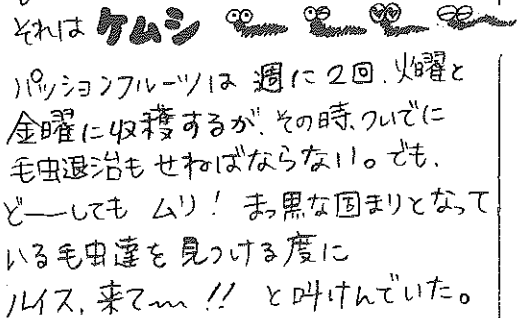 それは ケムシ
パッションフルーツは 週に2回、火曜と
金曜に収穫するが、その時、ついでに
毛虫退治も せねばならない。でも、
どーーしても ムリ! まっ黒な固まりとなって
いる毛虫達を 見つける度に
ルイス、来て〜〜!! と叫けんでいた。